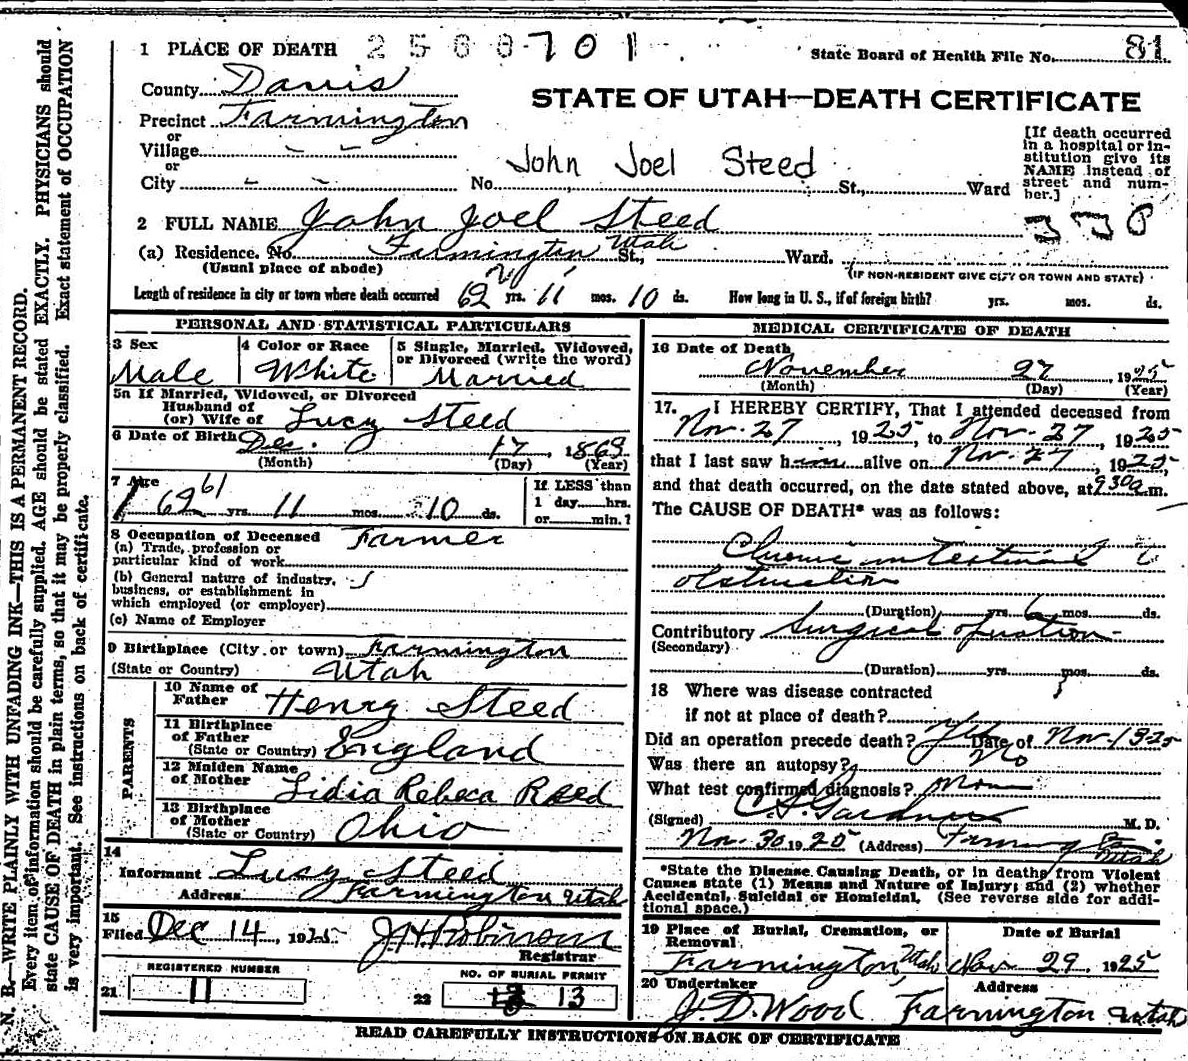 1 PLACE OF DEATH 2560 701
State Board of Health File No. 81
County Davis
STATE OF UTAH—DEATH CERTIFICATE
Precinct Farmington
or
Village
or
City No. St., Ward
John Joel Steed
[If death occurred
in a hospital or in-
stitution give its
NAME instead of
street and num-
ber.]
2 FULL NAME John Joel Steed
330
(a) Residence. No. Farmington Utah St., Ward.
(Usual place of abode)
(IF NON-RESIDENT GIVE CITY OR TOWN AND STATE)
Length of residence in city or town where death occurred 62 yrs. 11 mos. 10 ds. How long in U. S., if of foreign birth? yrs. mos. ds.
PERSONAL AND STATISTICAL PARTICULARS
3 Sex
Male
4 Color or Race
White
5 Single, Married, Widowed,
or Divorced (write the word)
Married
5a If Married, Widowed, or Divorced
Husband of
(or) Wife of Lucy Steed
6 Date of Birth Dec. 17, 1863
(Month) (Day) (Year)
7 Age
62 61 yrs. 11 mos. 10 ds.
If LESS than
1 day hrs.
or min.?
8 Occupation of Deceased Farmer
(a) Trade, profession or
particular kind of work
(b) General nature of industry,
business, or establishment in
which employed (or employer)
(c) Name of Employer
9 Birthplace (City or town) Farmington
(State or Country) Utah
PARENTS
10 Name of
Father Henry Steed
11 Birthplace
of Father
(State or Country) England
12 Maiden Name
of Mother Lidia Rebeca Reed
13 Birthplace
of Mother
(State or Country) Ohio
14
Informant Lucy Steed
Address Farmington Utah
15
Filed Dec 14, 1925 J H Robinson
Registrar
REGISTERED NUMBER
21 11
NO. OF BURIAL PERMIT
22 13
MEDICAL CERTIFICATE OF DEATH
16 Date of Death
November 27, 1925
(Month) (Day) (Year)
17. I HEREBY CERTIFY, That I attended deceased from
Nov. 27, 1925, to Nov. 27, 1925
that I last saw him alive on Nov. 27, 1925,
and that death occurred, on the date stated above, at 930a m.
The CAUSE OF DEATH* was as follows:
Chronic intestinal
obstruction
(Duration) yrs. 6 mos. ds.
Contributory Surgical operation
(Secondary)
(Duration) yrs. mos. ds.
18 Where was disease contracted
if not at place of death?
Did an operation precede death? Yes Date of Nov. 1925
Was there an autopsy? No
What test confirmed diagnosis?
(Signed) C. S. Gardner M. D.
Nov. 30 1925 (Address) Farmington Utah
*State the Disease Causing Death, or in deaths from Violent
Causes state (1) Means and Nature of Injury; and (2) whether
Accidental, Suicidal or Homicidal. (See reverse side for addi-
tional space.)
19 Place of Burial, Cremation, or
Removal
Farmington, Utah
Date of Burial
Nov 29 1925
20 Undertaker
J. D. Wood
Address
Farmington Utah
READ CAREFULLY INSTRUCTIONS ON BACK OF CERTIFICATE
N. B.—WRITE PLAINLY WITH UNFADING INK—THIS IS A PERMANENT RECORD.
Every item of information should be carefully supplied. AGE should be stated EXACTLY. PHYSICIANS should
state CAUSE OF DEATH in plain terms, so that it may be properly classified. Exact statement of OCCUPATION
is very important. See instructions on back of certificate.